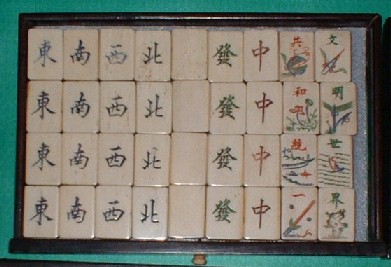 東 南 西 北 發 中 共 文
東 南 西 北 發 中 和 明
東 南 西 北 發 中 統 世
東 南 西 北 發 中 一 界